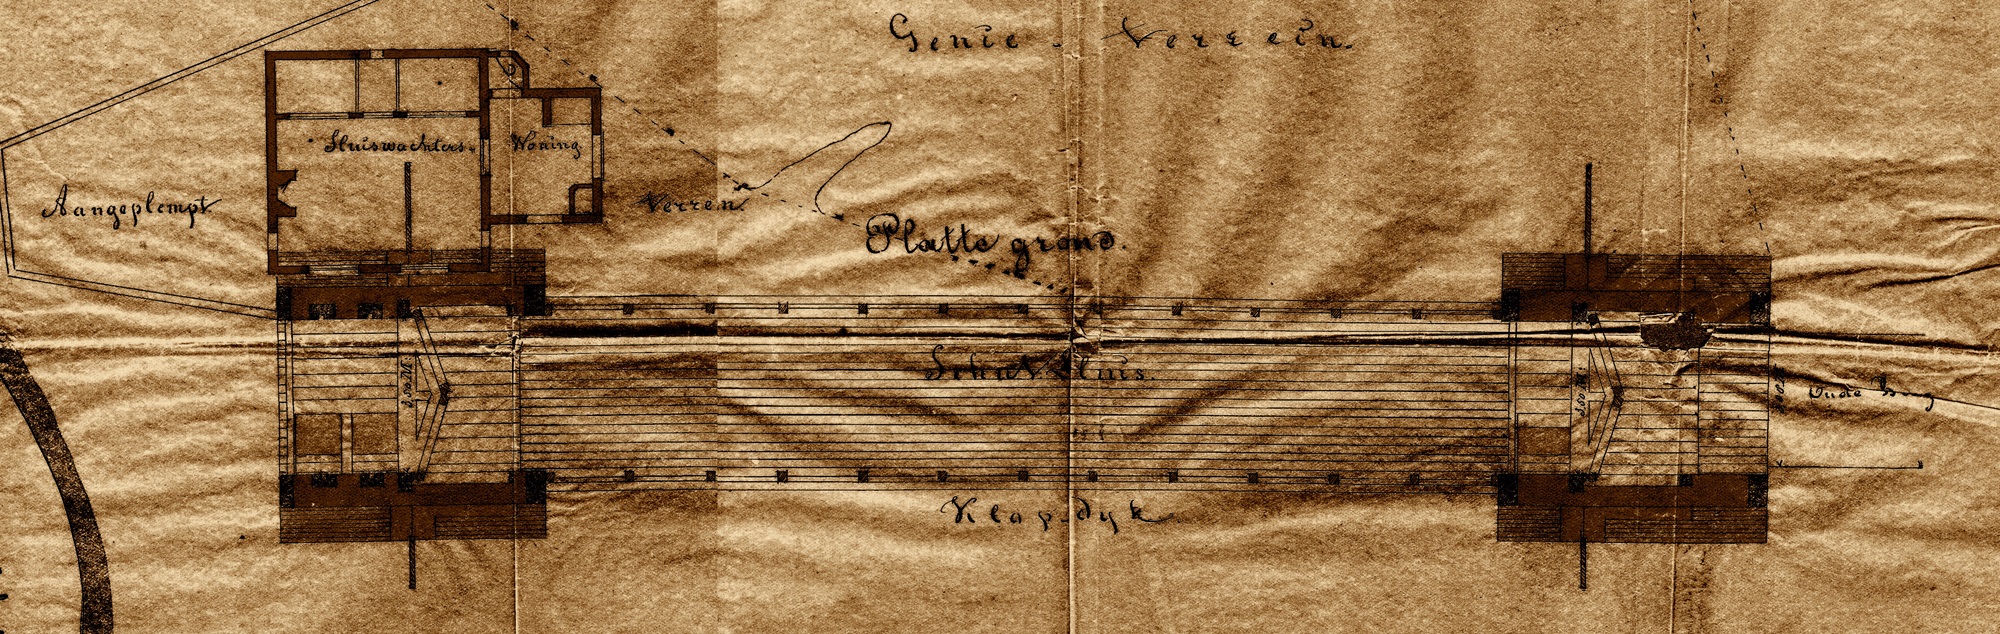 Genie - Terrein.
Sluiswachters-Woning
Aangeplempt.
Terrein.
Platte grond.
Schut Sluis.
Vloer
Vloer
Oude
Klapdyk